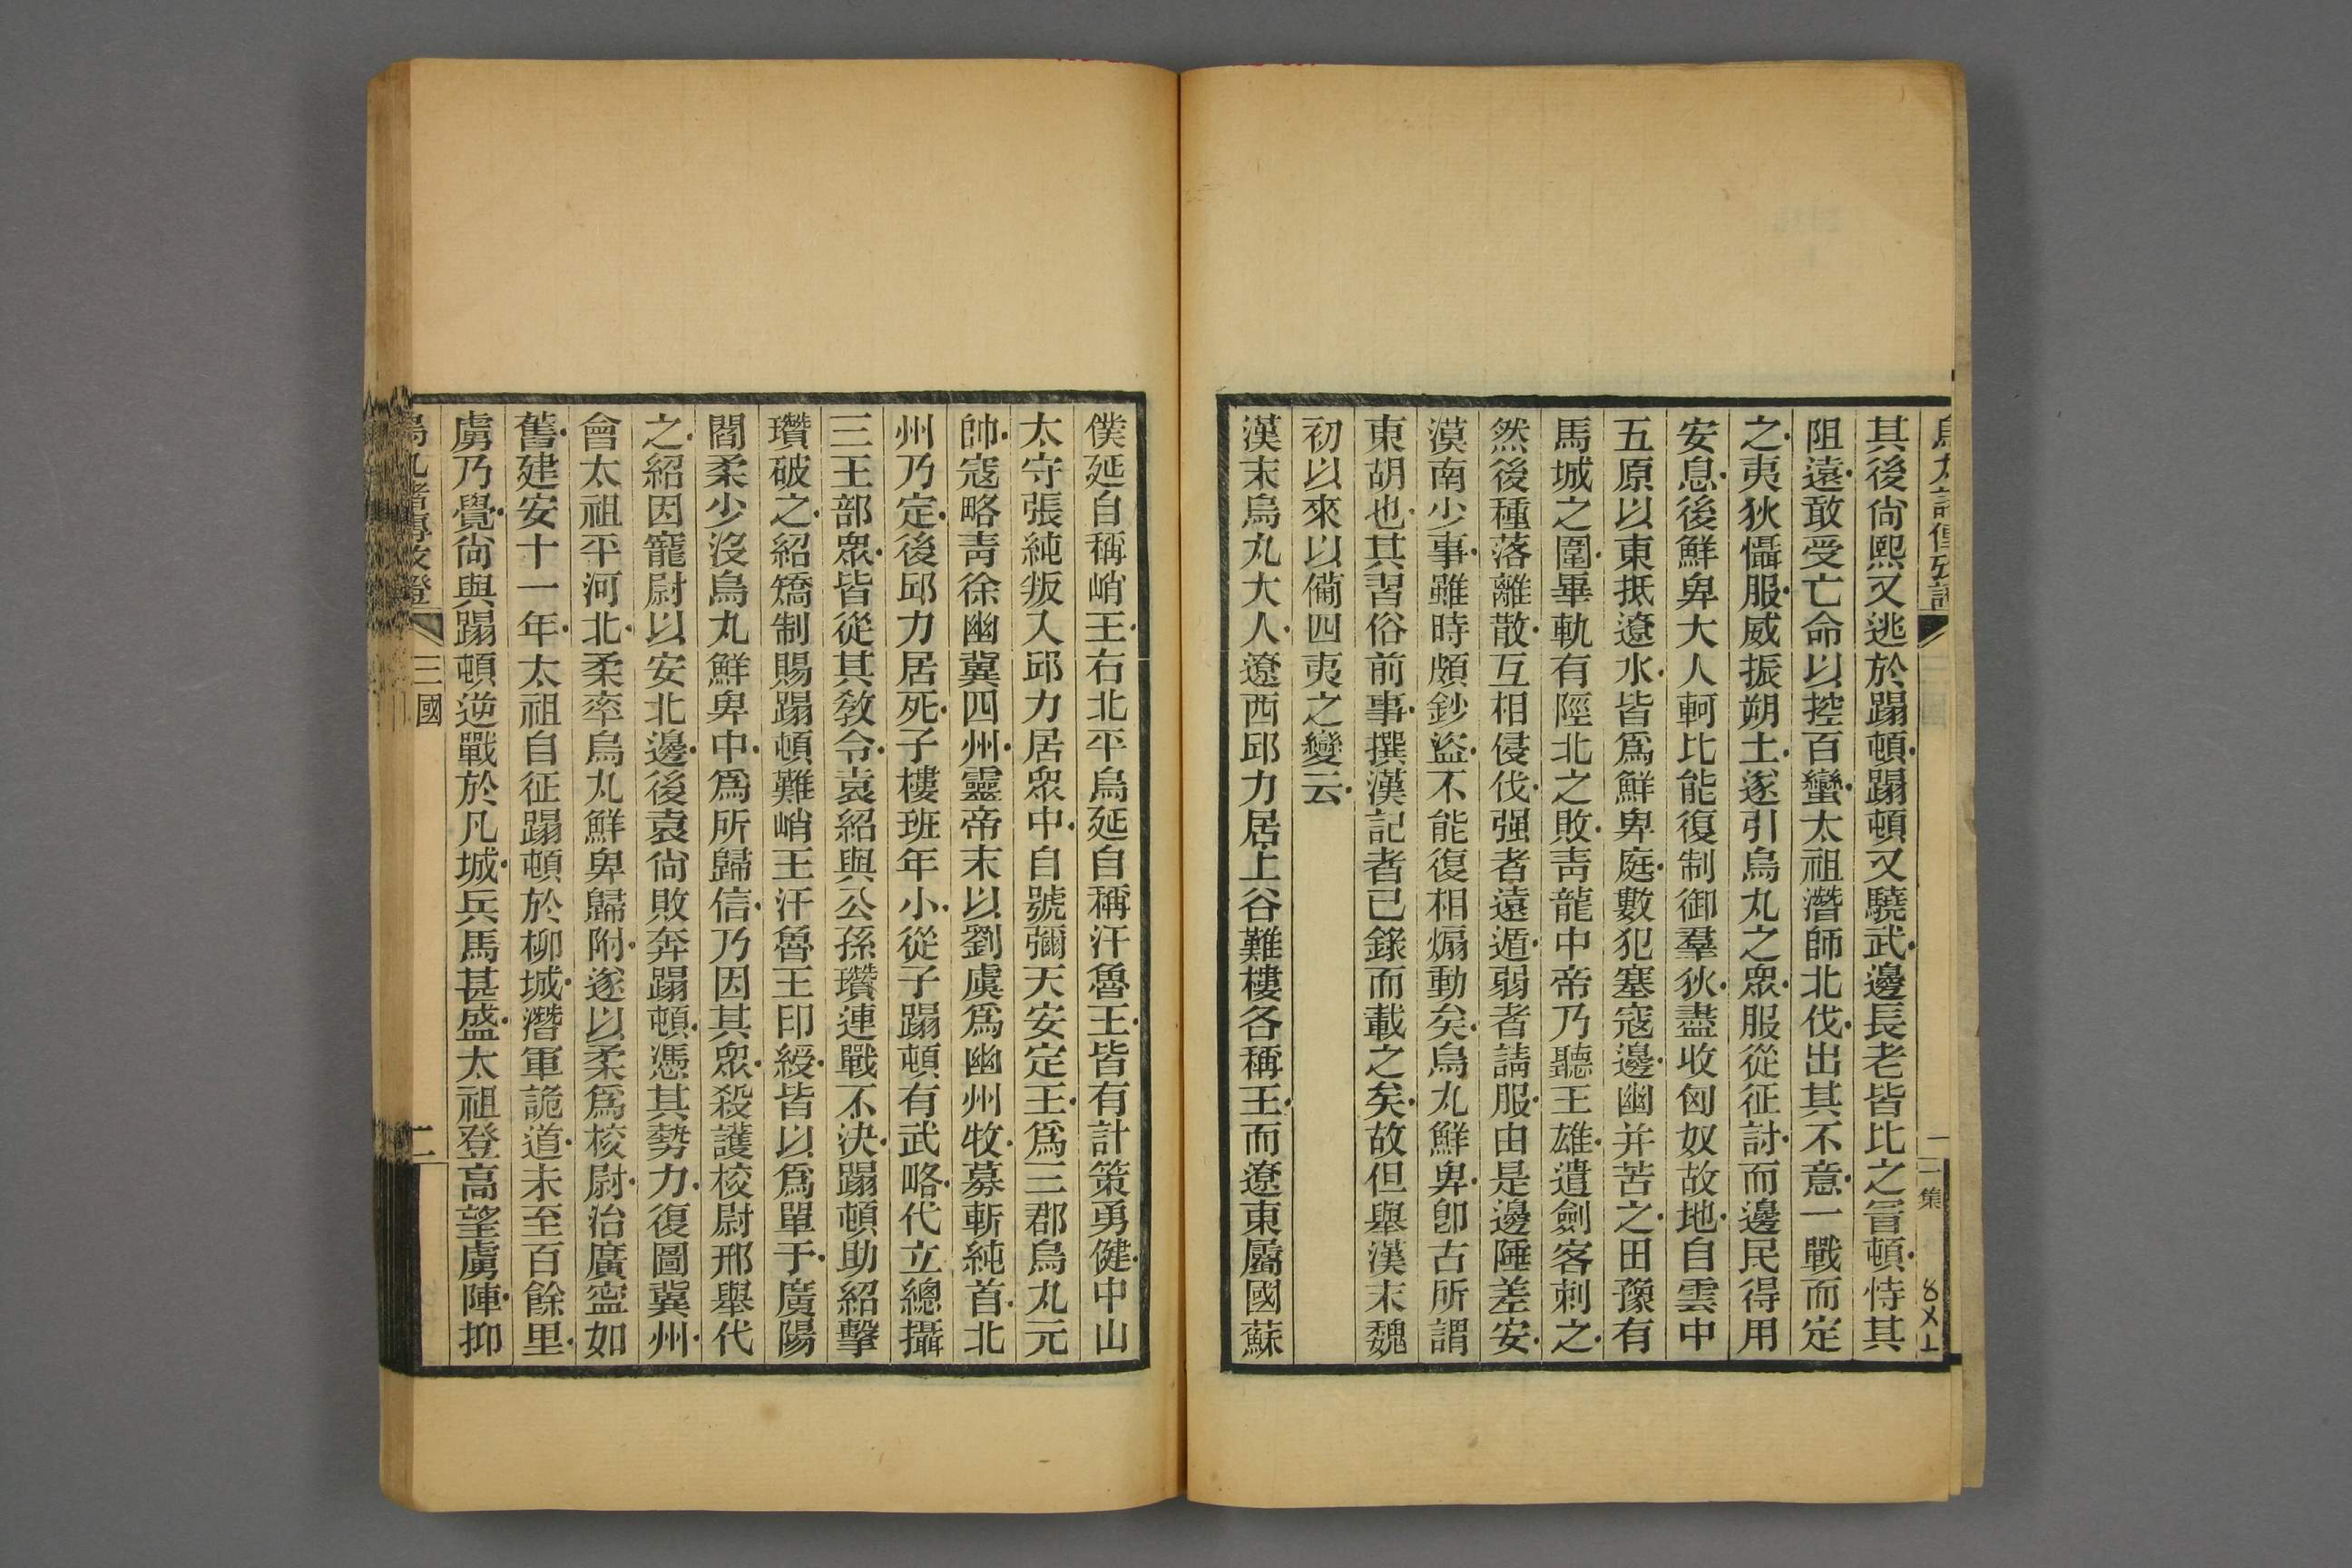 其後尙熙又逃於蹋頓蹋頓又驍武邊長老皆比之冒頓恃其
阻遠敢受亡命以控百蠻太祖潛師北伐出其不意一戰而定
之夷狄懾服威振朔土遂引烏丸之眾服從征討而邊民得用
安息後鮮卑大人軻比能復制御羣狄盡收匈奴故地自雲中
五原以東抵遼水皆爲鮮卑庭數犯塞寇邊幽并苦之田豫有
馬城之圍畢軌有陘北之敗靑龍中帝乃聽王雄遣劍客刺之
然後種落離散互相侵伐强者遠遁弱者請服由是邊陲差安
漠南少事雖時頗鈔盜不能復相煽動矣烏丸鮮卑卽古所謂
東胡也其習俗前事撰漢記者已錄而載之矣故但舉漢末魏
初以來以備四夷之變云
漢末烏丸大人遼西邱力居上谷難樓各稱王而遼東屬國蘇
僕延自稱峭王右北平烏延自稱汗魯王皆有計策勇健中山
太守張純叛入邱力居眾中自號彌天安定王爲三郡烏丸元
帥寇略靑徐幽冀四州靈帝末以劉虞爲幽州牧募斬純首北
州乃定後邱力居死子樓班年小從子蹋頓有武略代立總攝
三王部眾皆從其敎令袁紹與公孫瓚連戰不決蹋頓助紹擊
瓚破之紹矯制賜蹋頓難峭王汗魯王印綬皆以爲單于廣陽
閻柔少沒烏丸鮮卑中爲所歸信乃因其眾殺護校尉邢舉代
之紹因寵尉以安北邊後袁尙敗奔蹋頓憑其勢力復圖冀州
會太祖平河北柔率烏丸鮮卑歸附遂以柔爲校尉治廣寍如
舊建安十一年太祖自征蹋頓於柳城潛軍詭道未至百餘里
虜乃覺尙與蹋頓逆戰於凡城兵馬甚盛太祖登高望虜陣抑
三國
二